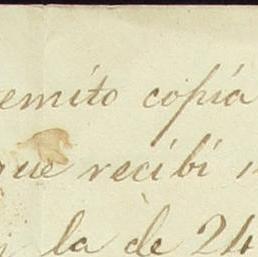 emito copia
que recibi
la de 24